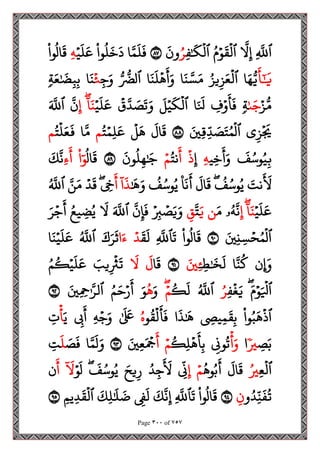 ٱللَّهِ إِلَّا ٱلْقَوْمُ ٱلْكَٰفِرُونَ ٨٧ فَلَمَّا دَخَلُوا۟ عَلَيْهِ قَالُوا۟
يَٰٓأَيُّهَا ٱلْعَزِيزُ مَسَّنَا وَأَهْلَنَا ٱلضُّرُّ وَجِئْنَا بِبِضَٰعَةٍ
مُّزْجَىٰةٍ فَأَوْفِ لَنَا ٱلْكَيْلَ وَتَصَدَّقْ عَلَيْنَآ ۖ إِنَّ ٱللَّهَ
يَجْزِى ٱلْمُتَصَدِّقِينَ ٨٨ قَالَ هَلْ عَلِمْتُم مَّا فَعَلْتُم
بِيُوسُفَ وَأَخِيهِ إِذْ أَنتُمْ جَٰهِلُونَ ٨٩ قَالُوٓا۟ أَءِنَّكَ
لَأَنتَ يُوسُفُ ۖ قَالَ أَنَا۠ يُوسُفُ وَهَٰذَآ أَخِى ۖ قَدْ مَنَّ ٱللَّهُ
عَلَيْنَآ ۖ إِنَّهُۥ مَن يَتَّقِ وَيَصْبِرْ فَإِنَّ ٱللَّهَ لَا يُضِيعُ أَجْرَ
ٱلْمُحْسِنِينَ ٩٠ قَالُوا۟ تَٱللَّهِ لَقَدْ ءَاثَرَكَ ٱللَّهُ عَلَيْنَا
وَإِن كُنَّا لَخَٰطِـِٔينَ ٩١ قَالَ لَا تَثْرِيبَ عَلَيْكُمُ
ٱلْيَوْمَ ۖ يَغْفِرُ ٱللَّهُ لَكُمْ ۖ وَهُوَ أَرْحَمُ ٱلرَّٰحِمِينَ ٩٢
ٱذْهَبُوا۟ بِقَمِيصِى هَٰذَا فَأَلْقُوهُ عَلَىٰ وَجْهِ أَبِى يَأْتِ
بَصِيرًا وَأْتُونِى بِأَهْلِكُمْ أَجْمَعِينَ ٩٣ وَلَمَّا فَصَلَتِ
ٱلْعِيرُ قَالَ أَبُوهُمْ إِنِّى لَأَجِدُ رِيحَ يُوسُفَ ۖ لَوْلَآ أَن
تُفَنِّدُونِ ٩٤ قَالُوا۟ تَٱللَّهِ إِنَّكَ لَفِى ضَلَٰلِكَ ٱلْقَدِيمِ ٩٥
Page ٣٠٠ of ٢٥٧